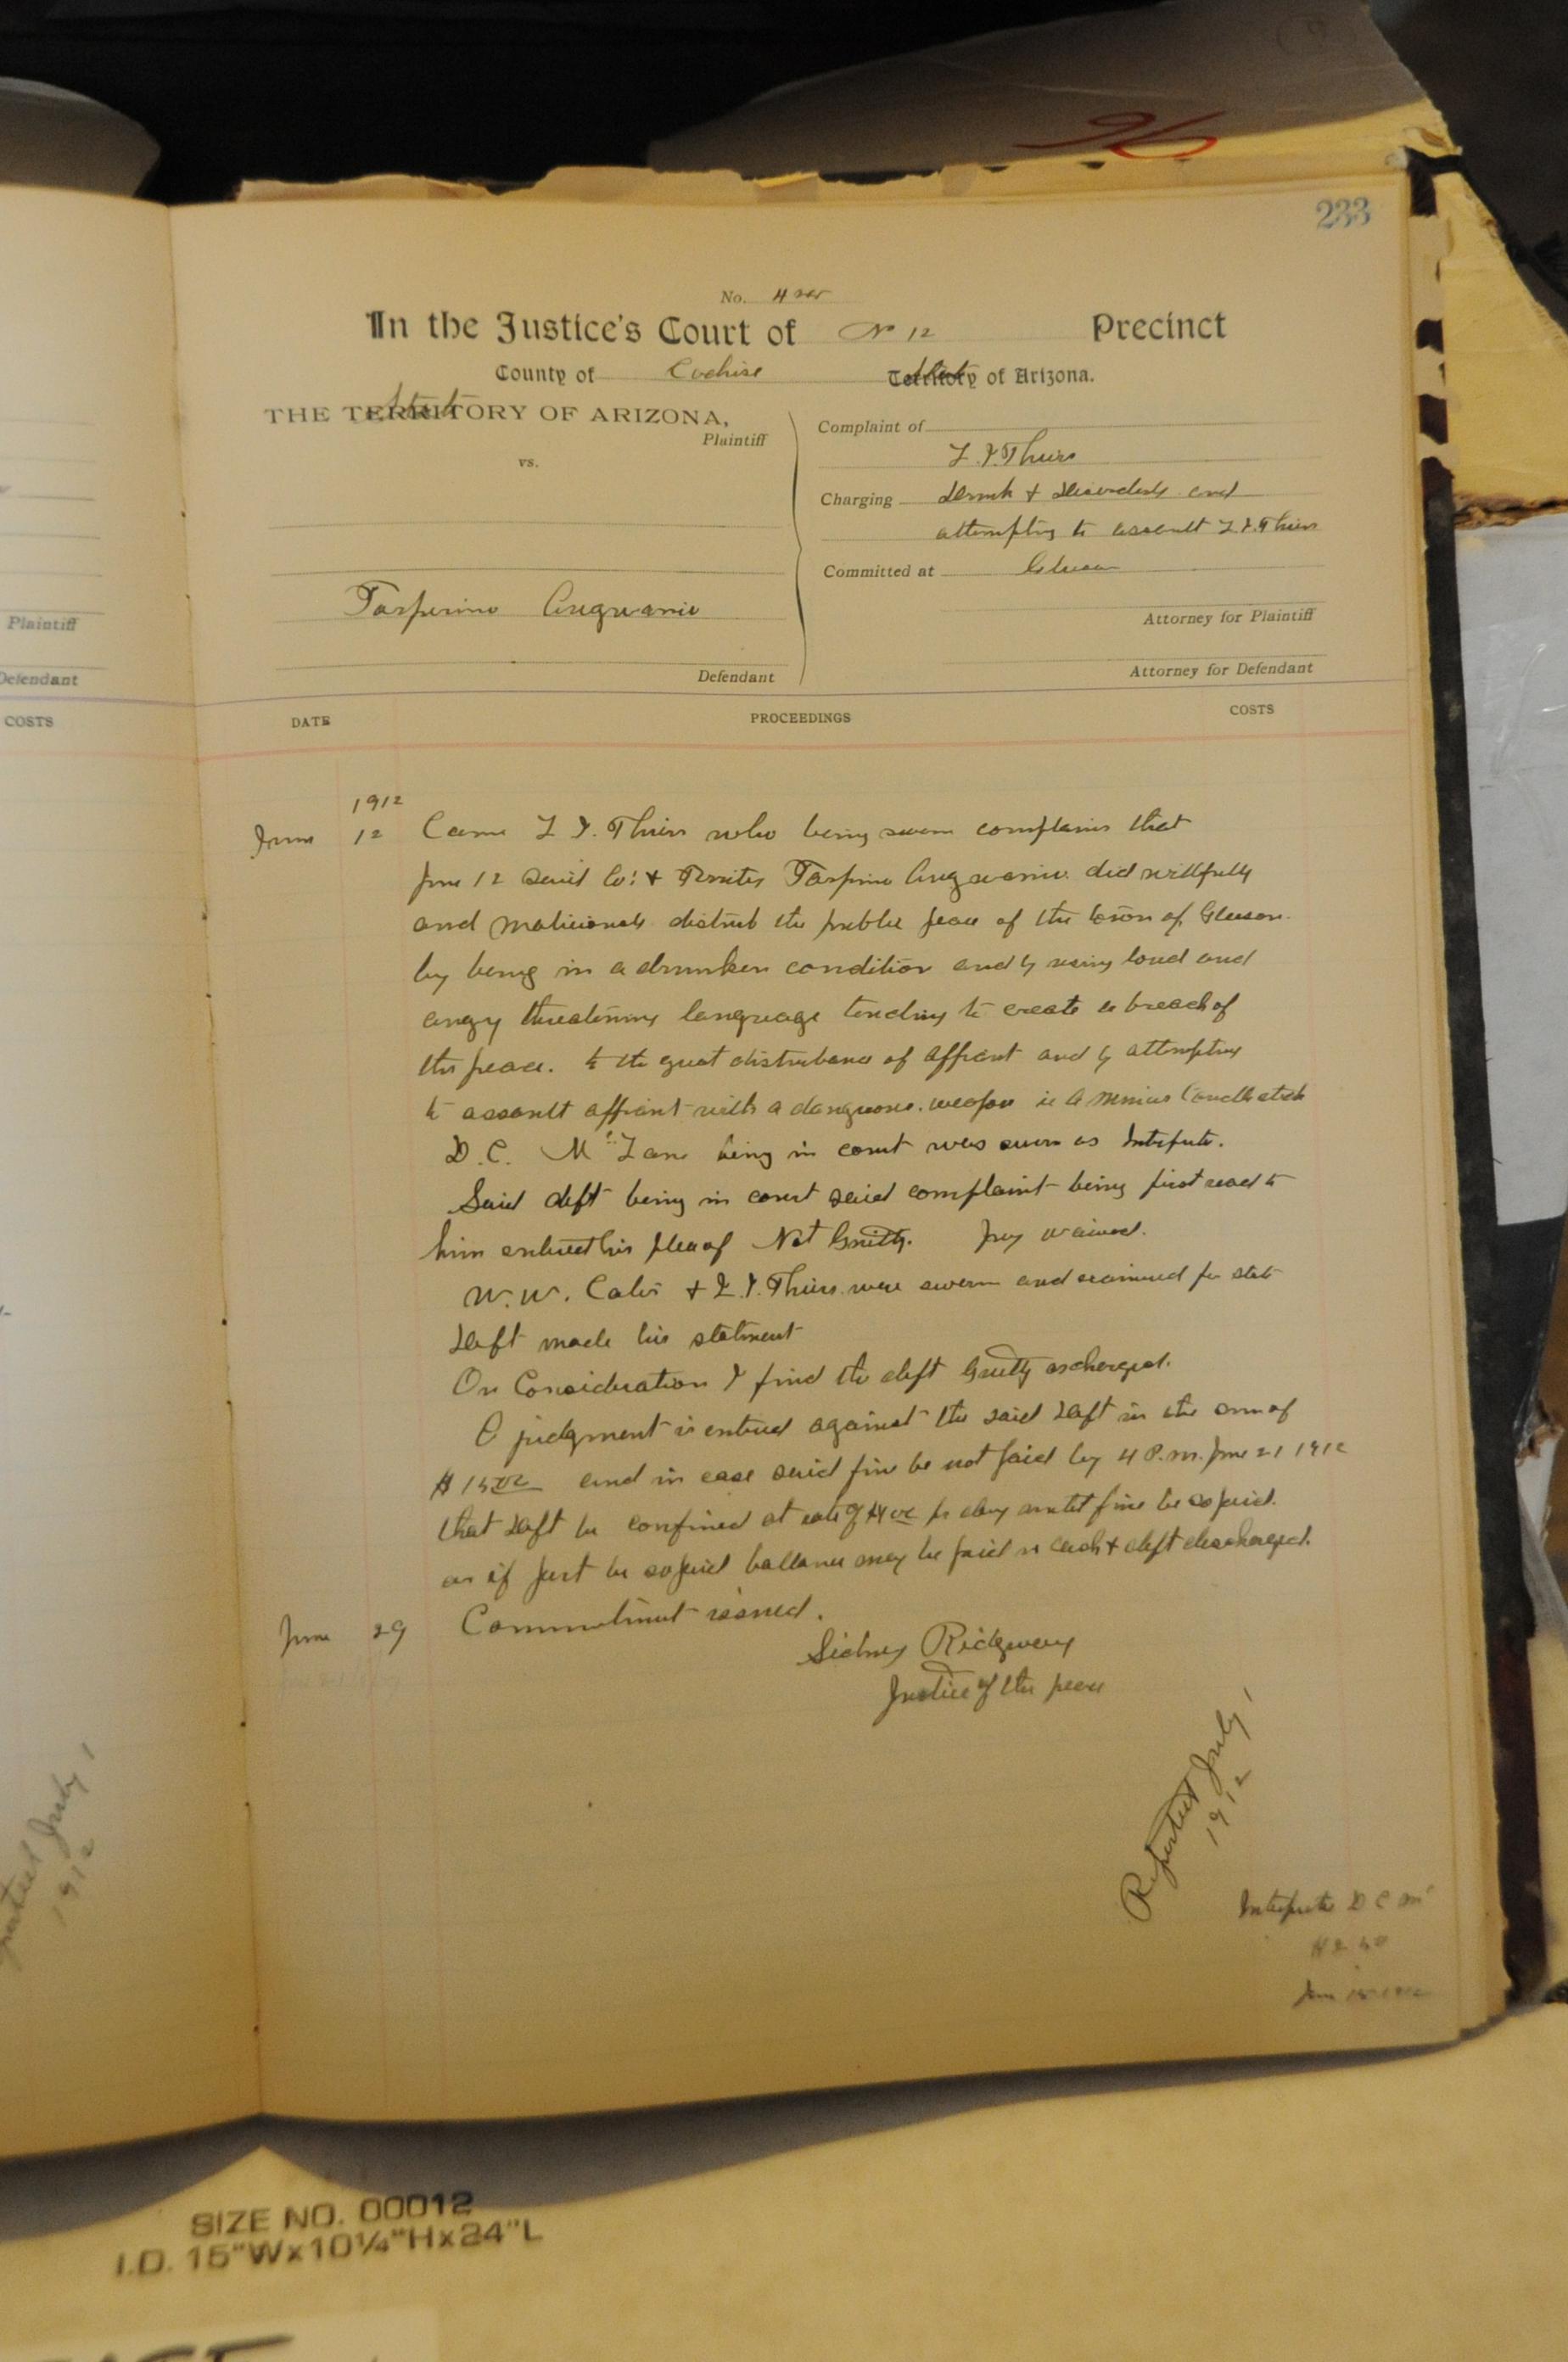 96
233
No. 4
In the Justice's Court of No 12 Precinct
County of Cochise State Territory of Arizona.
State
THE TERRITORY OF ARIZONA,
Plaintiff
vs.
Tarperino
Defendant
Complaint of
Charging Drunk & Disorderly and
attempting to assault
Committed at Gleeson
Attorney for Plaintiff
Attorney for Defendant
DATE PROCEEDINGS COSTS
1912
June 12 Came who being sworn complains that
June 12 said Co. & did willfully
and maliciously disturb the public peace of the town of Gleeson
by being in a drunken condition and by using loud and
angry threatening language tending to create a breach of
the peace. to the great disturbance of affiant and by attempting
to assault affiant with a dangerous weapon ie a miners Candlestick
D. C. McLane being in court was sworn as Interpreter.
Said deft being in court said complaint being first read to
him entered his plea of Not Guilty. Jury waived.
W. W. were sworn and examined for state
Deft made his statment
On Consideration I find the deft Guilty as charged.
A judgment is entered against the said Deft in the sum of
$15 00 and in case said fine be not paid by 4 P.m. June 21 1912
that Deft be confined at rate of per day until fine be so paid.
or if part be so paid ballance may be paid in cash & deft discharged.
June 29 Commitment issued.
Sidney Ridgway
Justice of the peace
Reported July 1
1912
Interpreter D C Mc
Plaintiff
Defendant
COSTS
July 1
1912
SIZE NO. 00012
I.D. 15"Wx10¼"Hx24"L